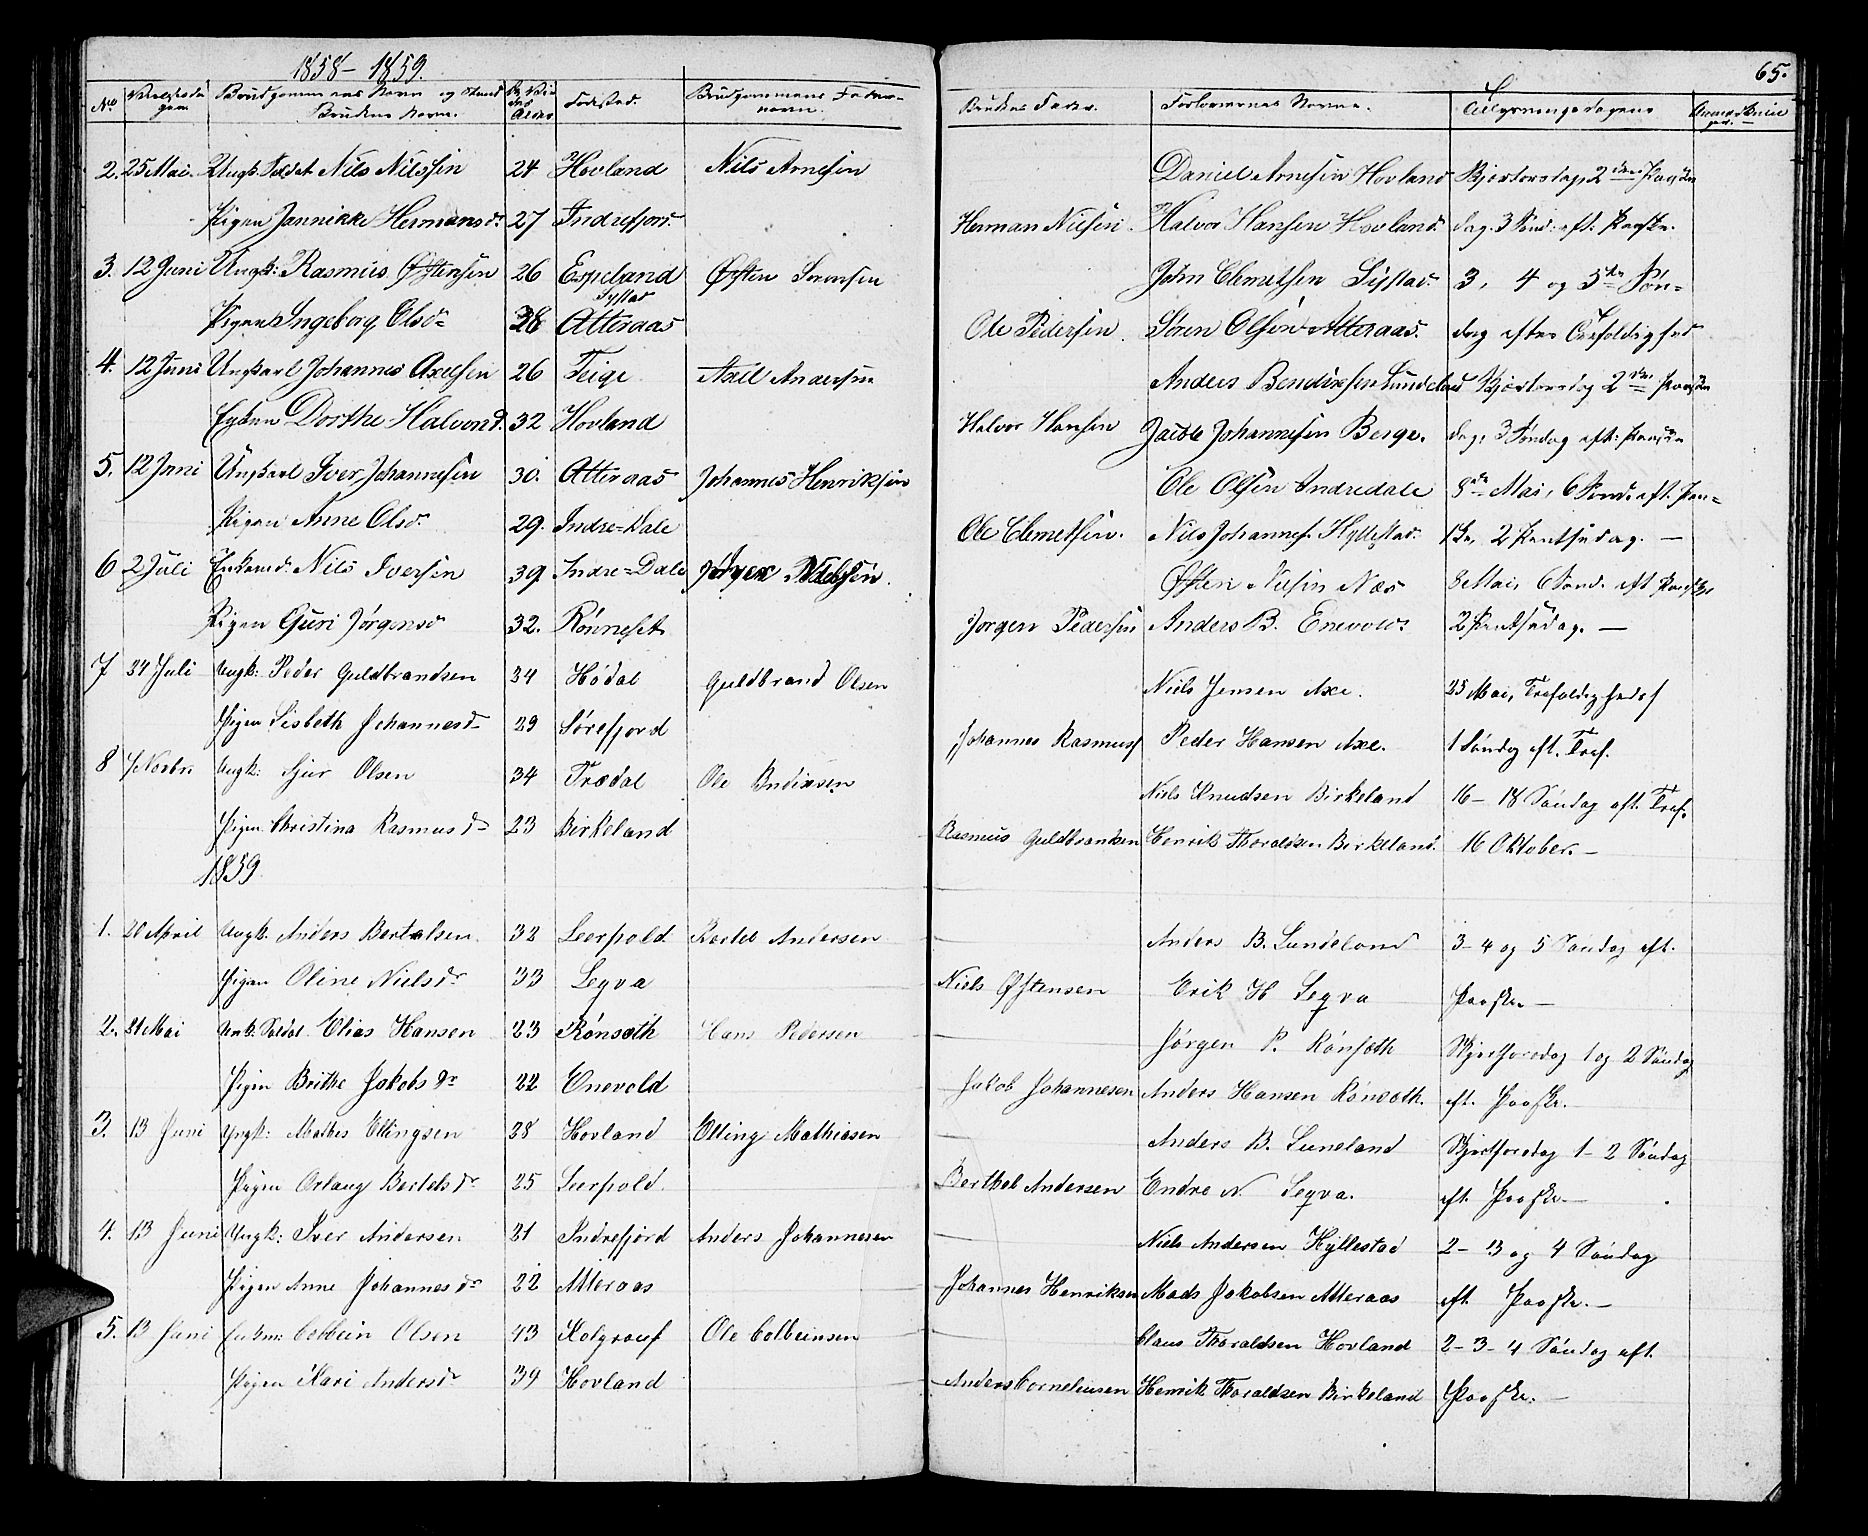 1858 - 1859.
65.
No Vielsesdagen Brudgommenes Navn og Stand Brudens Navn. Alder Fødested. Brudgommens Faders navn. Brudens Fader. Forlovernes Navne. Lysningsdagene Anmærkninger
2. 25 Mai. Ungk. Soldat Nils Nilssen 24 Hovland Nils Arnesen Daniel Arnesen Hovland Skjærtorsdag, 2den Paaske
Pigen Jannikke Hermansd. 27 Indrefjord. Herman Nilsen. Halvor Hansen Hovland. dag. 3 Sønd. eft. Paaske.
3. 12 Juni Ungk: Rasmus Østensen 26 Espeland Systad Østen Sørensen John Clemetsen Systad. 3, 4 og 5te Søn-
Pigen Ingeborg Olsd. 28 Atteraas Ole Pedersen. Søren Olsen Atteraas. dag efter Trefoldighed
4. 12 Juni Ungkarl Johannes Axelsen 26 Teige Axel Andersen Anders Bendixsen Lundeland Skjærtorsdag 2den Paaske
Enken Dorthe Halvorsd. 32 Hovland Halvor Hansen Jacob Johannesen Berge. dag, 3 Søndag eft: Paaske
5. 12 Juni Ungkarl Iver Johannesen 30. Atteraas Johannes Henriksen Ole Olsen Indredale 8de Mai, 6 Sønd. eft. Paa-
Pigen Anne Olsd. 29. Indre=Dale Ole Clemetsen. Nils Johannes. Hyllestad. ske, 2 Pentsedag. —
6 2 Juli Enkemd. Nils Iversen 39 Indre=Dale Østen Nilsen Næs 8 Mai, 6 Sønd. eft Paaske
Pigen Guri Jørgensd 32. Rønneset Jørgen Pedersen Anders B. Enevold. 2 Pentsedag. —
7 24 Juli Ungk: Peder Guldbrandsen 34 Hødal Guldbrand Olsen Niels Jensen Axe. 25 Mai, Trefoldighedsf
Pigen Lisbeth Johannesd 29 Sørefjord Johannes Rasmusf Peder Hansen Axe. 1 Søndag eft. Tref.
8 7 Novbr. Ungk: Sjur Olsen 34 Trædal Ole Bndixsen Niels Knudsen Birkeland 16 - 18 Søndag eft. Tref.
Pigen Christina Rasmusd 23 Birkeland Rasmus Guldbrandsen Henrik Thoraldsen Birkeland. 16 Oktober. —
1859
1. 20 April Ungk. Anders Bertelsen 32 Leerpold Bertel Andersen Anders B. Lundeland 3 - 4 og 5 Søndag eft.
Pigen Oline Nielsd. 33 Leqva Niels Østensen Erik H Leqva Paaske —
2. 21 Mai Unk. Soldat Elias Hansen 23 Rønsæth Hans Pedersen Jørgen P. Rønsæth Skjertorsdag 1 og 2 Søndag
Pigen Brithe Jakobsdr 22 Enevold Jakob Johannesen Anders Hansen Rønsæth. eft. Paaske. —
3. 13 Juni Yngk: Mathes Ellingsen 28 Hovland Elling Mathiasen Anders B. Luneland Skjertorsdag 1 - 2 Søndag
Pigen Orlaug Bertelsdr 25 Leerpold. Berthel Andersen Endre N Leqva. eft Paaske. —
4. 13 Juni Yngk: Iver Andersen 21 Indrefjord Anders Johannesen Niels Andersen Hyllestad 2 - 3 og 4 Søndag
Pigen Anne Johannesdr 22 Atteraas Johannes Henriksen Mads Jakobsen Atteraas eft Paaske. —
5. 13 Juni Enkm: Colbein Olsen 43 Kolgrouf Ole Colbeinsen Claus Thoraldsen Hovland 2 - 3 - 4 Søndag eft.
Pigen Kari Andersdr 39 Hovland Anders Corneliusen Henrik Thoraldsen Birkeland Paaske. —